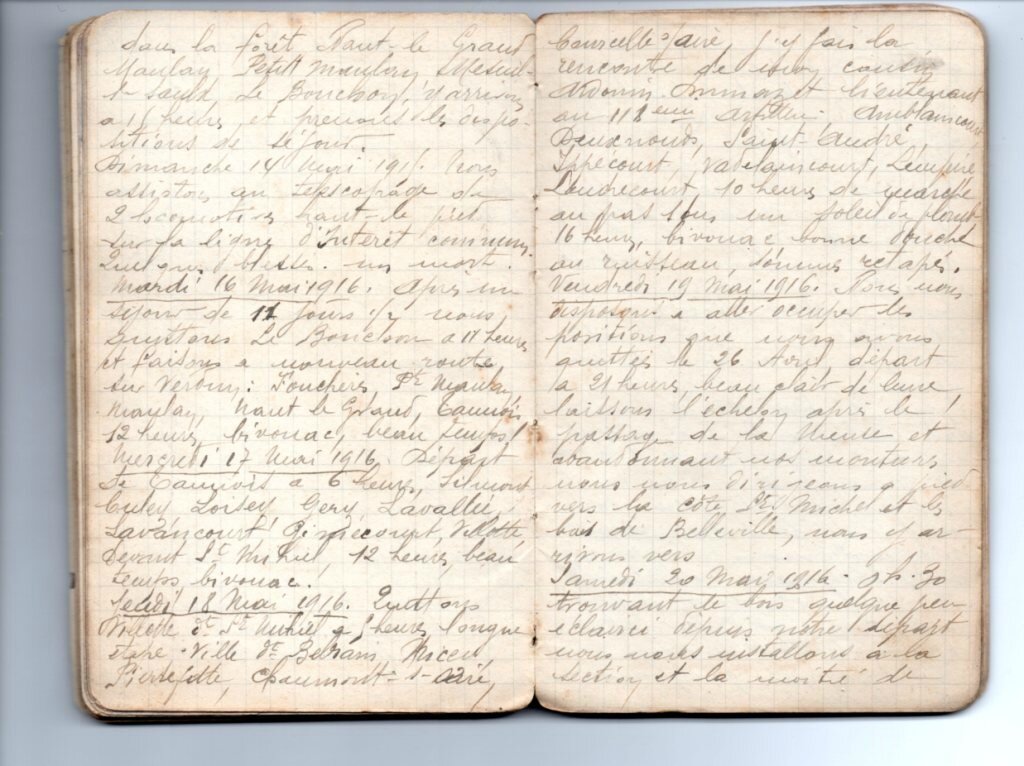 dans la forêt, Nant-le Grand
Maulay, Petit Maulay, Mesnil-
s- Saulx, Le Bouchon, y arrivons
a 11 heures et prenons les dispo-
sitions de séjour.
Dimanche 14 Mai 191. Nous
assistons au telescopage de
2 locomotives haut-le pied
sur la ligne d'Interet commun.
Quelques blessés. un mort.
Mardi 16 Mai 1916. Après un
séjour de 11 jours 1/2 nous
quittons Le Bouchon a 11 heures
et faisons a nouveau route
sur Verdun: Fouchères, Pt Maulay
Maulay, Nant le Grand, Tannois
12 heures, bivouac, beau temps!
Mercredi 17 Mai 1916. Départ
de Tannois a 6 heures, Silmont
Culey, Loisey, Gery, Lavallée,
Lavancourt, Rignecourt, Villotte
Devant St Mihiel, 12 heures, beau
temps, bivouac.
Jeudi 18 Mai 1916. Quittons
Villotte dt St Mihiel a heures, longue
étape. Ville dt Belrain, Nicey,
Pierrefitte, Chaumont-s-Aire,
Courcelle s/aire, j'y fais la
rencontre de mon cousin
lieutenant
au 118eme artillerie. Amblaincourt
Deuxnouds, Saint-André,
Ippecourt, Vadelaincourt, Lempire
Landrecourt, 10 heures de marche
au pas sous un soleil de plomb
16 heures, bivouac bonne douche
au ruisseau, sommes retapés.
Vendredi 19 Mai 1916. Nous nous
disposons a aller occuper les
positions que nous avons
quittées le 26 Avril, départ
a 21 heures, beau clair de lune
laissons l'échelon après le
passage de la Meuse et
abandonnant nos montures
nous nous dirigeons a pied
vers la côte St Michel et les
bois de Belleville, nous y ar-
rivons vers
Samedi 20 Mai 1916. 0h.30
trouvant le bois quelque peu
eclairci depuis notre départ
nous nous installons à la
section et la moitié de